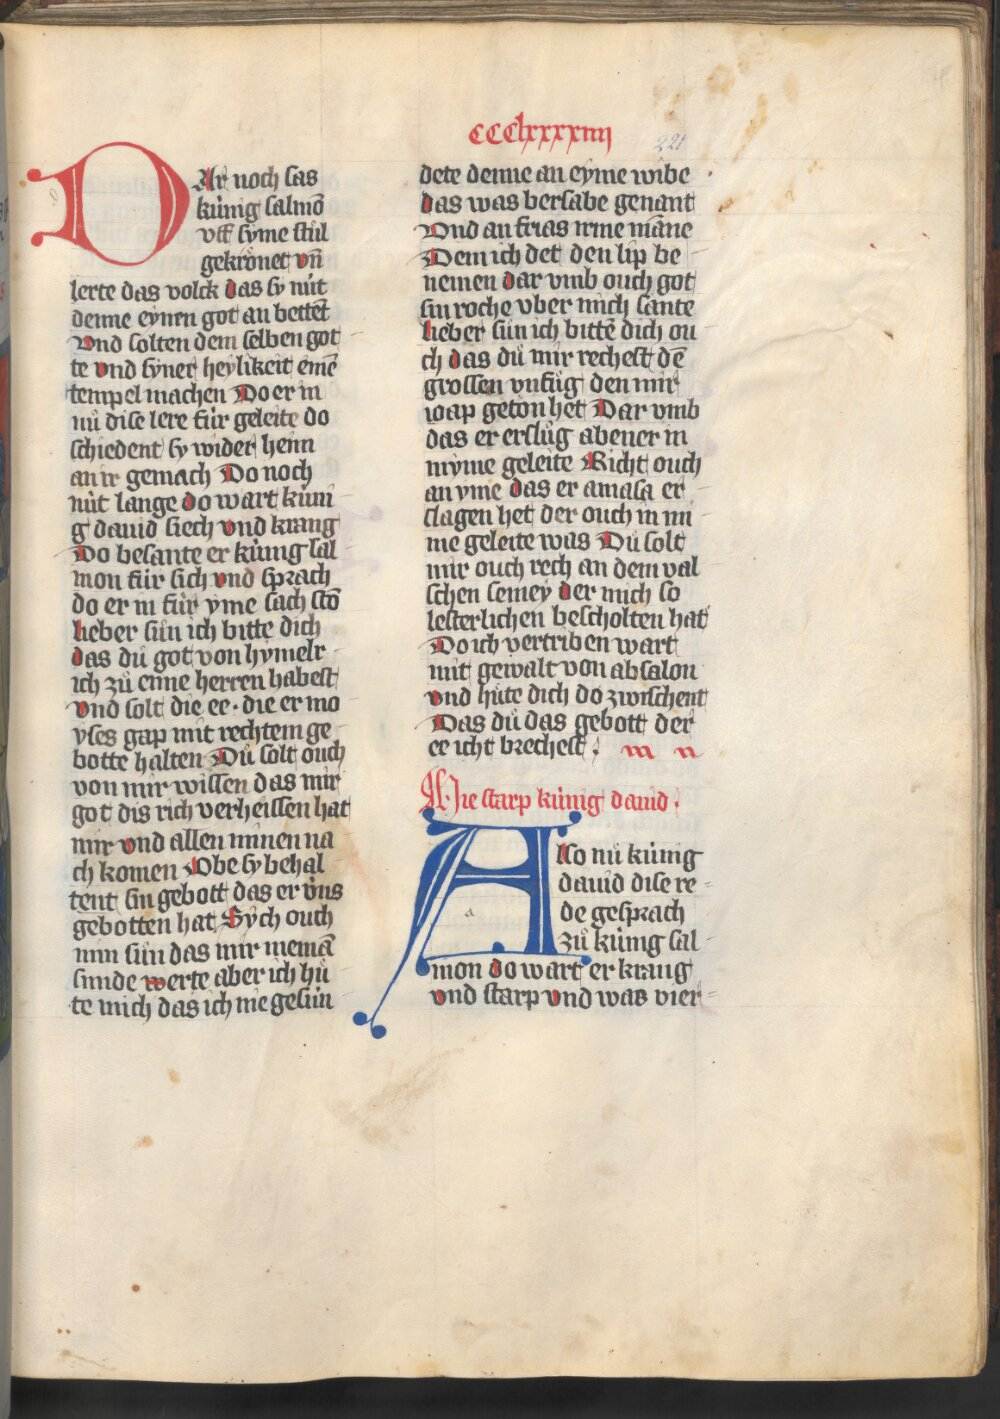 CCClxxxxiiii
221
DAr noch sas
kúnig salmō
vff syme stůl
gekrönet vn̄
lerte das volck das sy nút
denne eynen got an bettēt
Vnd solten dem selben got
te vnd syner heylikeit emē
tempel machen Do er in
nů dise lere für geleite do
schiedent sy wider heim
an ir gemach Do noch
nút lange do wart kúni
g dauid siech vnd krang
Do besante er kúnig sal
mon für sich vnd sprach
do er in für yme sach stō
lieber sún ich bitte dich
das dů got von hymelr
ich zů eime herren habest
vnd solt die ee · die er mo
yses gap mit rechtem ge
botte halten Dů solt ouch
von mir wissen das mir
got dis rich verheissen hat
mir vnd allen minen na
ch komen Obe sy behal
tent sin gebott das er vns
gebotten hat Sych ouch
min sún das mir niemā
sunde werte aber ich hů
te mich das ich nie gesún
dete denne an eyme wibe
das was bersabe genant
Vnd an frias irme māne
Dem ich det den lip be
nemen dar vmb ouch got
sin roche vber mich sante
lieber sún ich bittē dich ou
ch das dů mir rechest dē
grossen vnfůg den mir
ioap geton het Dar vmb
das er erslůg abener in
myme geleite Richt ouch
an yme das er amasa er
slagen het der ouch in mi
me geleite was Dů solt
mir ouch rech an dem val
schen semey der mich so
lesterlichen bescholten hat
Do ich vertriben wart
mit gewalt von absalon
vnd hůte dich do zwischent
Das dů das gebott der
ee icht brechest
Hie starp kúnig dauid ·
Also nů kúnig
dauid dise re
de gesprach
zů kúnig sal
mon do wart er krang
vnd starp vnd was vier